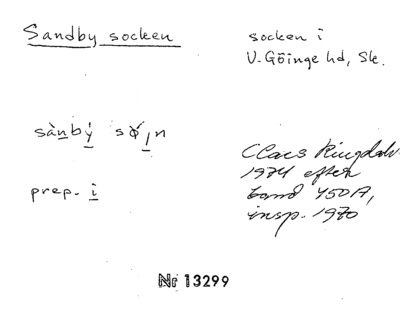 Sandby socken
socken i
V. Göinge hd, Sk.
sànby̆
prep. i
Claes Ringdahl
1974 efter
band 450A,
insp. 1970
Nr 13299